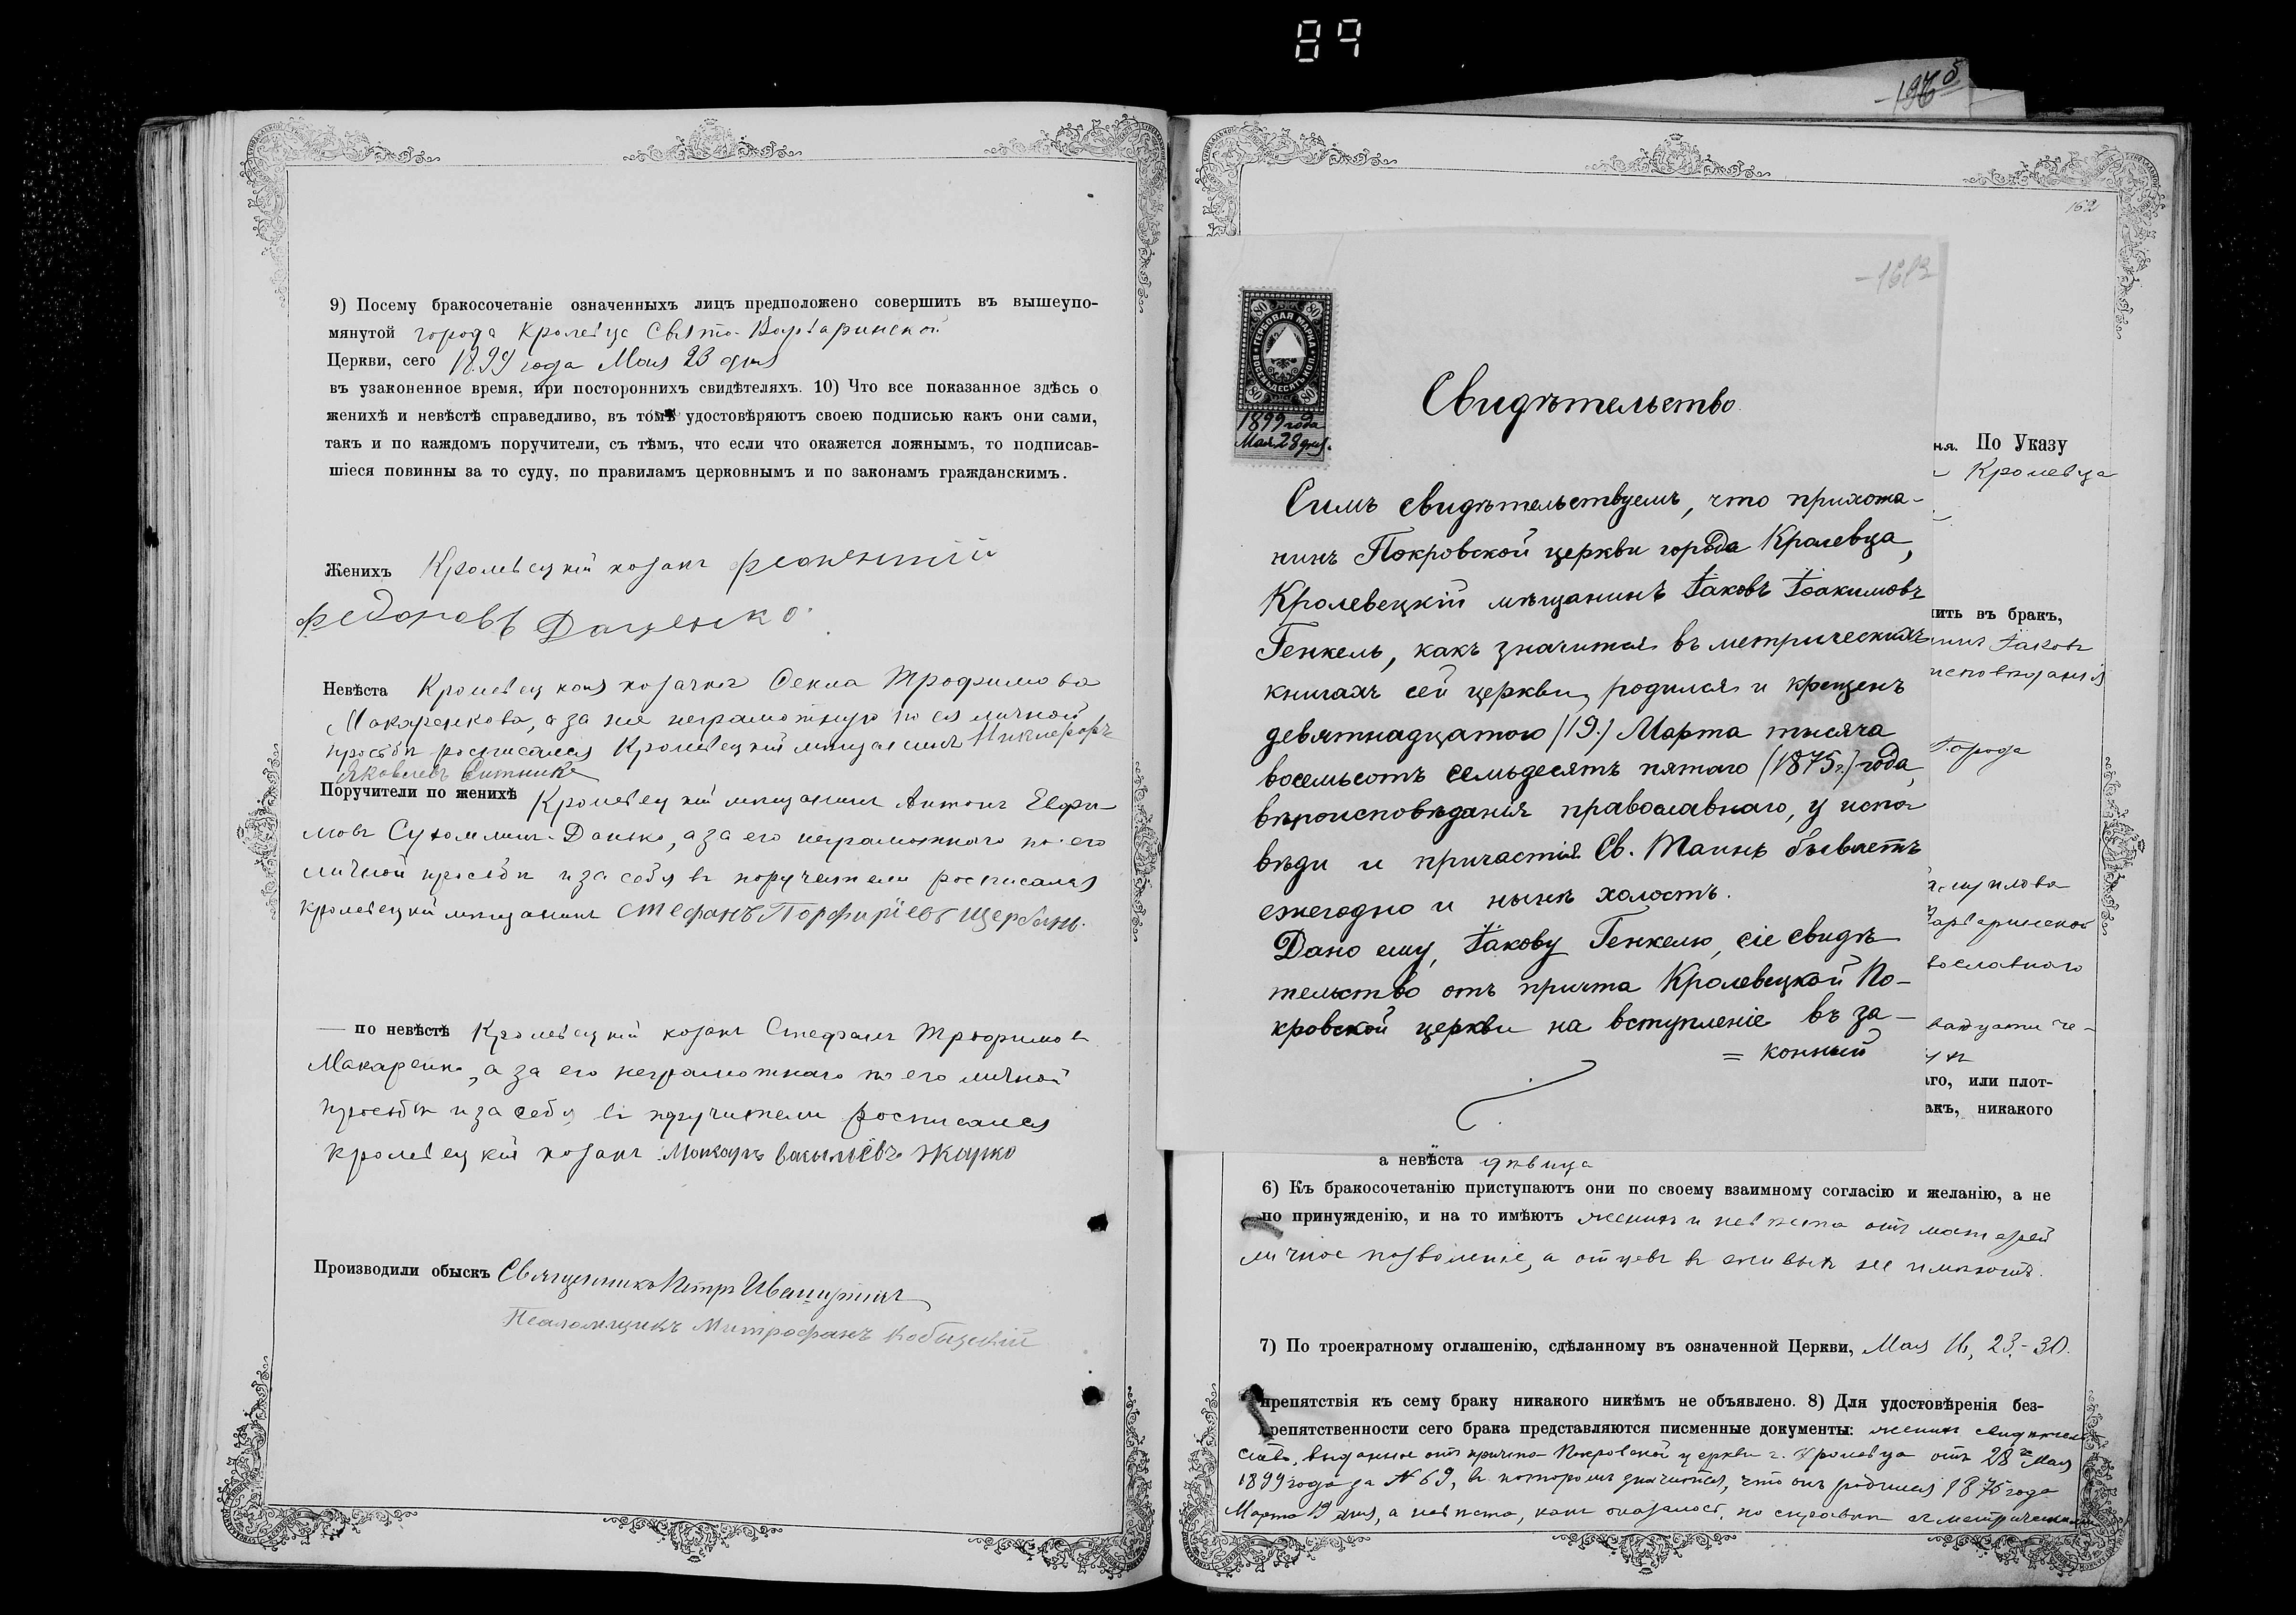 89
-196 б
9) Посему бракосочетаніе означенныхъ лицъ предположено совершить въ вышеупо-
мянутой города Кролевца Свято-Варваринской
Церкви, сего 1899 года Мая 23 дня
въ узаконенное время, при постороннихъ свидѣтеляхъ. 10) Что все показанное здѣсь о
женихѣ и невѣстѣ справедливо, въ томъ удостовѣряютъ своею подписью какъ они сами,
такъ и по каждомъ поручители, съ тѣмъ, что если что окажется ложнымъ, то подписав-
шіеся повинны за то суду, по правиламъ церковнымъ и по законамъ гражданскимъ.
Женихъ Кролевецкій козакъ
федоровъ Даценко.
Невѣста Кролевецкая козачка Текла Трофимова
Макаренкова, а за нее неграмотную по ея личной
просьбѣ росписался Кролевецкій мѣщанинъ Никифоръ
Яковлевъ Ситникъ
Поручители по женихѣ Кролевецкій мѣщанинъ Антонъ Евфи-
мовъ Сухомлинъ-Данько, а за его неграмотного по его
личной просьбѣ и за себя въ поручители росписался
кролевецкій мѣщанинъ Стефанъ Порфиріевъ Щербань.
— по невѣстѣ Кролевецкій козакъ Стефанъ Трофимовъ
Макаренко, а за его неграмотнаго по его личной
просьбѣ и за себя въ поручители росписался
кролевецкій козакъ Макаръ Васильевъ Жарко
Производили обыскъ Священникъ Петръ
Псаломщикъ Митрофанъ
162
80 80
ГЕРБОВАЯ МАРКА
ВОСЕМЬДЕСЯТЪ КОП.
80 80
1899 года
Мая 28 дня.
Свидѣтельство
Симъ свидѣтельствуемъ, что прихожа-
нинъ Покровской церкви города Кролевца,
Кролевецкій мѣщанинъ Іаковъ Іоакимовъ
Генкель, какъ значится въ метрическихъ
книгахъ сей церкви, родился и крещенъ
девятнадцатого (19.) Марта тысяча
восемьсотъ семьдесятъ пятаго (1875 г.) года,
вѣроисповѣданія православнаго, у испо-
вѣди и причастія Св. Таинъ бываетъ
ежегодно и нынѣ холостъ.
Дано ему, Іакову Генкелю, сіе свидѣ-
тельство отъ причта Кролевецкой По-
кровской церкви на вступленіе въ за-
= конный
ня. По Указу
Кролевца
ить въ бракъ,
Іаковъ
исповѣданія
Города
вославного
го, или плот-
акъ, никакого
а невѣста дѣвица
6) Къ бракосочетанію приступаютъ они по своему взаимному согласію и желанію, а не
по принужденію, и на то имѣютъ женихъ и невѣста отъ матерей
личное позволеніе, а отцевъ въ живыхъ не имѣютъ.
7) По троекратному оглашенію, сдѣланному въ означенной Церкви, Мая 16, 23.-30.
препятствія къ сему браку никакого никѣмъ не объявлено. 8) Для удостовѣренія без-
препятственности сего брака представляются писменные документы: женихъ свидѣтель-
ство, выданное отъ причта Покровской церкви г. Кролевца отъ 28го Мая
1899 года за № 69, въ которомъ значится, что онъ родился 1875 года
Марта 19 дня, а невѣста, какъ оказалось, по справкѣ съ метрическими